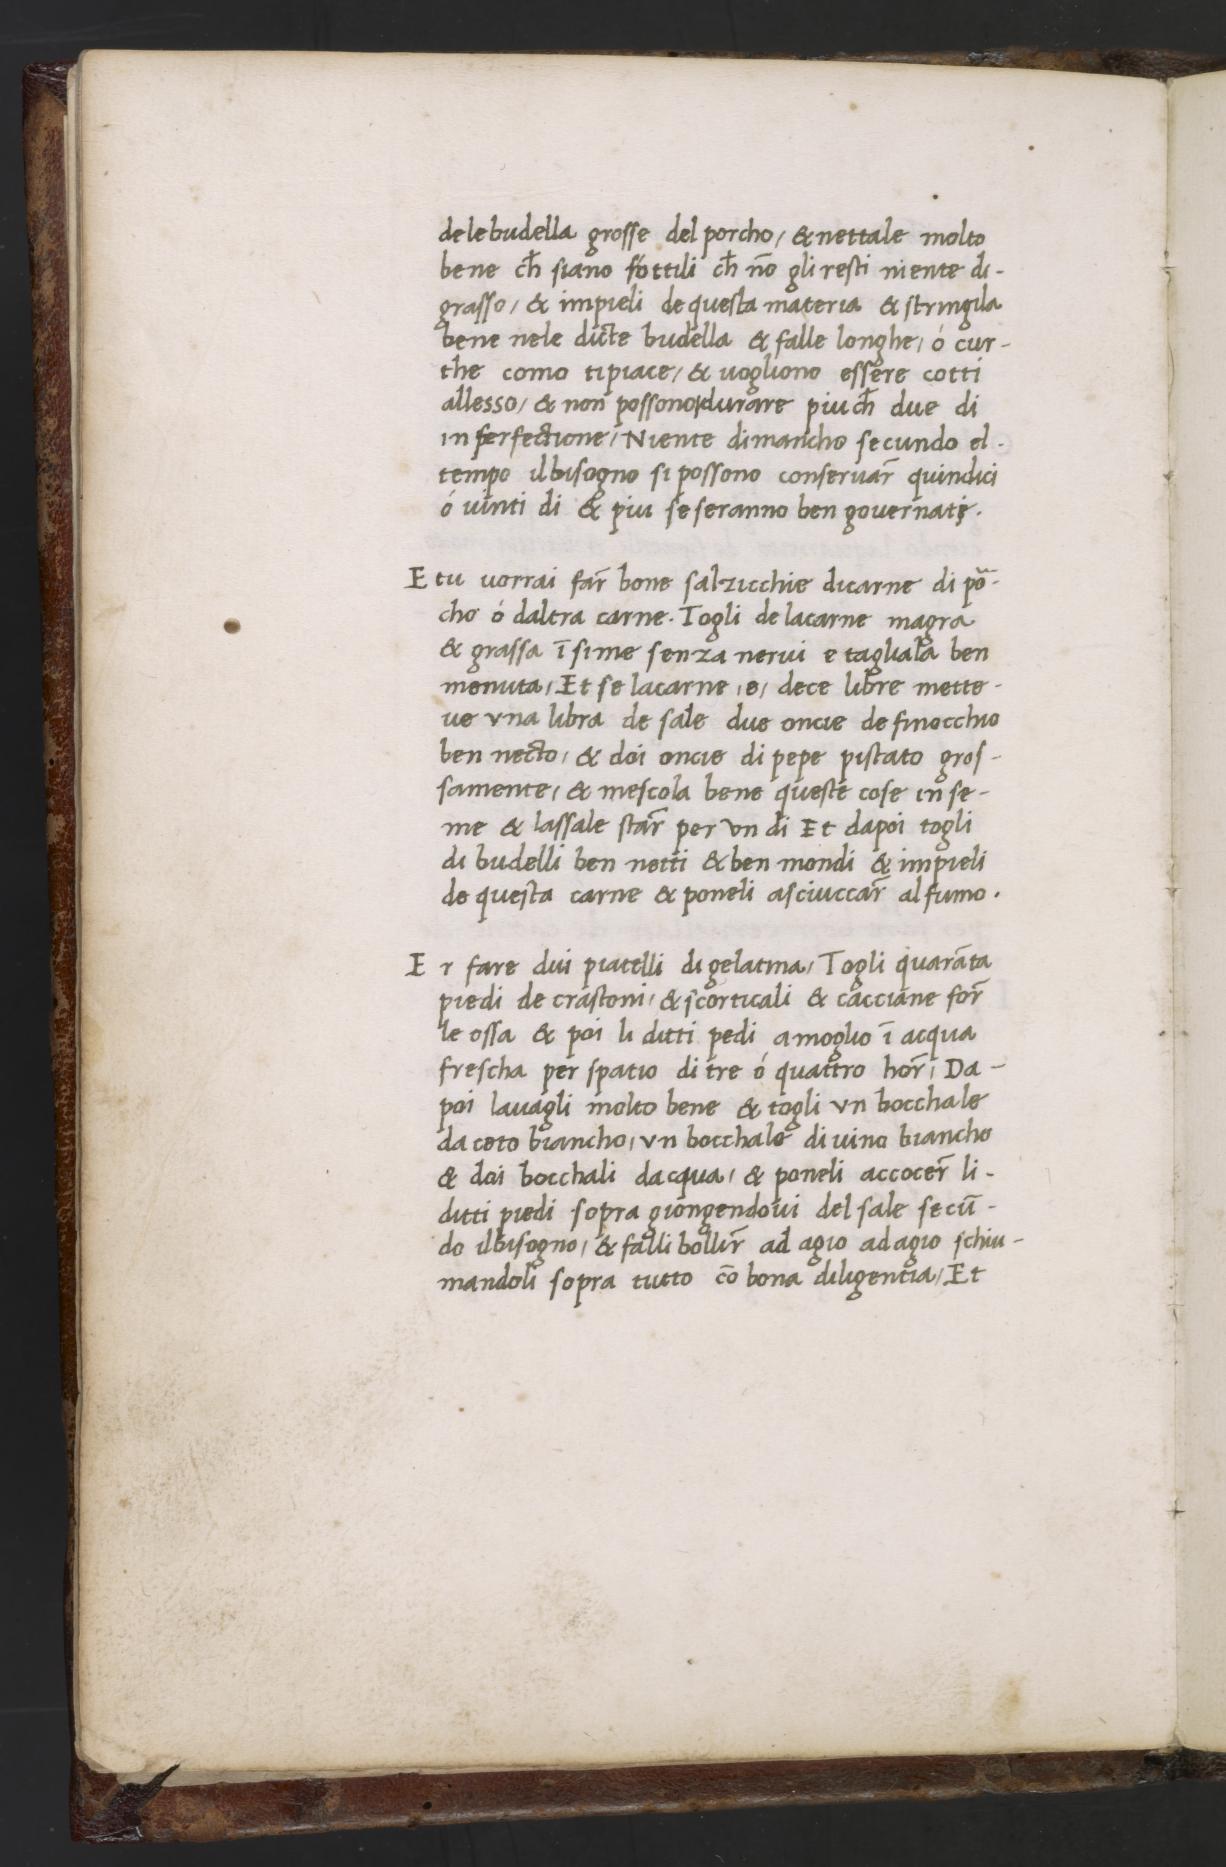 dele budella grosse del porcho, & nettale molto
bene ch̄ siano sottili ch̄ nō gli resti niente di-
grasso, & impieli de questa materia & stringila
bene nele dicte budella & falle longhe, ó cur-
the como ti piace, & uogliono essere cotti
allesso, & non possono durare piu ch̄ due di
in perfectione, Niente dimancho secundo el
tempo il bisogno si possono conseruar̄ quindici
ó uinti di & piu se seranno ben gouernati.
E tu uorrai far̄ bone salzicchie di carne di por-
cho ó daltra carne. Togli de la carne magra
& grassa īsime senza nerui e tagliala ben
menuta, Et se la carne, e, dece libre mette-
ue vna libra de sale due oncie de finocchio
ben necto, & doi oncie di pepe pistato gros-
samente, & mescola bene queste cose in se-
me & lassale star̄ per vn di Et dapoi togli
di budelli ben netti & ben mondi & impieli
de questa carne & poneli asciuccar̄ al fumo.
E r fare dui piatelli di gelatina, Togli quarāta
piedi de crastoni, & scorticali & cacciane for̄
le ossa & poi li ditti pedi a moglio ī acqua
frescha per spatio di tre ó quattro hor̄, Da-
poi lauagli molto bene & togli vn bocchale
daceto biancho, vn bocchale di uino biancho
& doi bocchali dacqua, & poneli accocer̄ li-
ditti piedi sopra giongendoui del sale secū-
do il bisogno, & falli bollir̄ ad agio ad agio schiu-
mandoli sopra tutto cō bona diligentia, Et